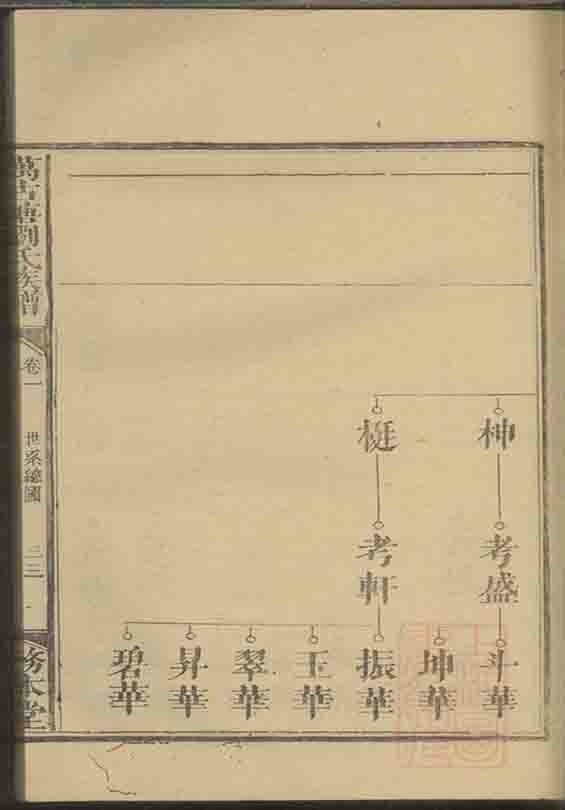 柛
梃
考盛
考軒
斗華
坤華
振華
玉華
翠華
昇華
碧華
萬古塘劉氏族譜
卷一
世系總圖
三三
務本堂